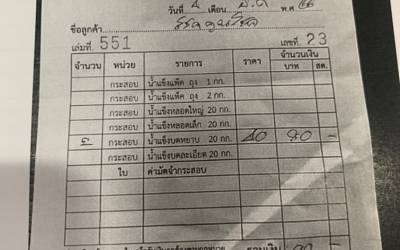 วันที่ 2 เดือน พ.ศ. 66
ชื่อลูกค้า
เล่มที่ 551 เลขที่ 23
จำนวน หน่วย รายการ ราคา จำนวนเงิน
บาท สต.
กระสอบ น้ำแข็งแพ็ค ถุง 1 กก.
กระสอบ น้ำแข็งแพ็ค ถุง 2 กก.
กระสอบ น้ำแข็งหลอดใหญ่ 20 กก.
กระสอบ น้ำแข็งหลอดเล็ก 20 กก.
กระสอบ น้ำแข็งบดหยาบ 20 กก. 40 80 -
กระสอบ น้ำแข็งบดละเอียด 20 กก.
ใบ ค่ามัดจำกระสอบ
รวมเงิน